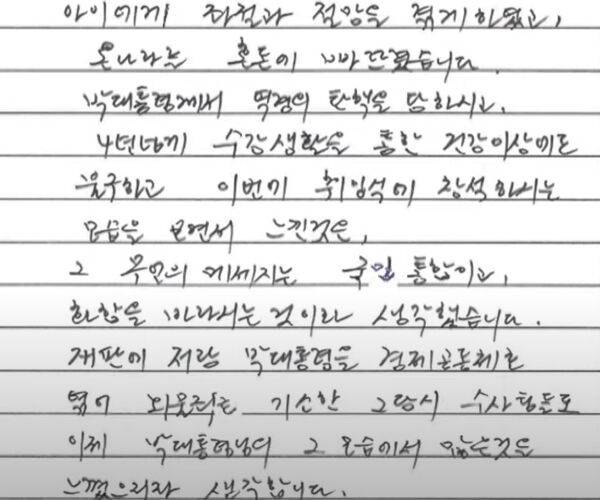 아이에게 좌절과 절망을 겪게하였고,
온나라는 혼돈에 빠뜨렸습니다.
박대통령께서 역경의 탄핵을 당하시고,
4년넘게 수감생활을 통한 건강이상에도
불구하고 이번에 취임식에 참석하시는
모습을 보면서 느낀것은,
그 무언의 메세지는 국민 통합이고,
화합을 바라시는 것이라 생각했습니다.
재판에 저랑 박대통령을 경제공동체로
엮어 뇌물죄로 기소한 그당시 수사팀들도
이제 박대통령님의 그 모습에서 얻는것을
느꼈으리라 생각합니다.